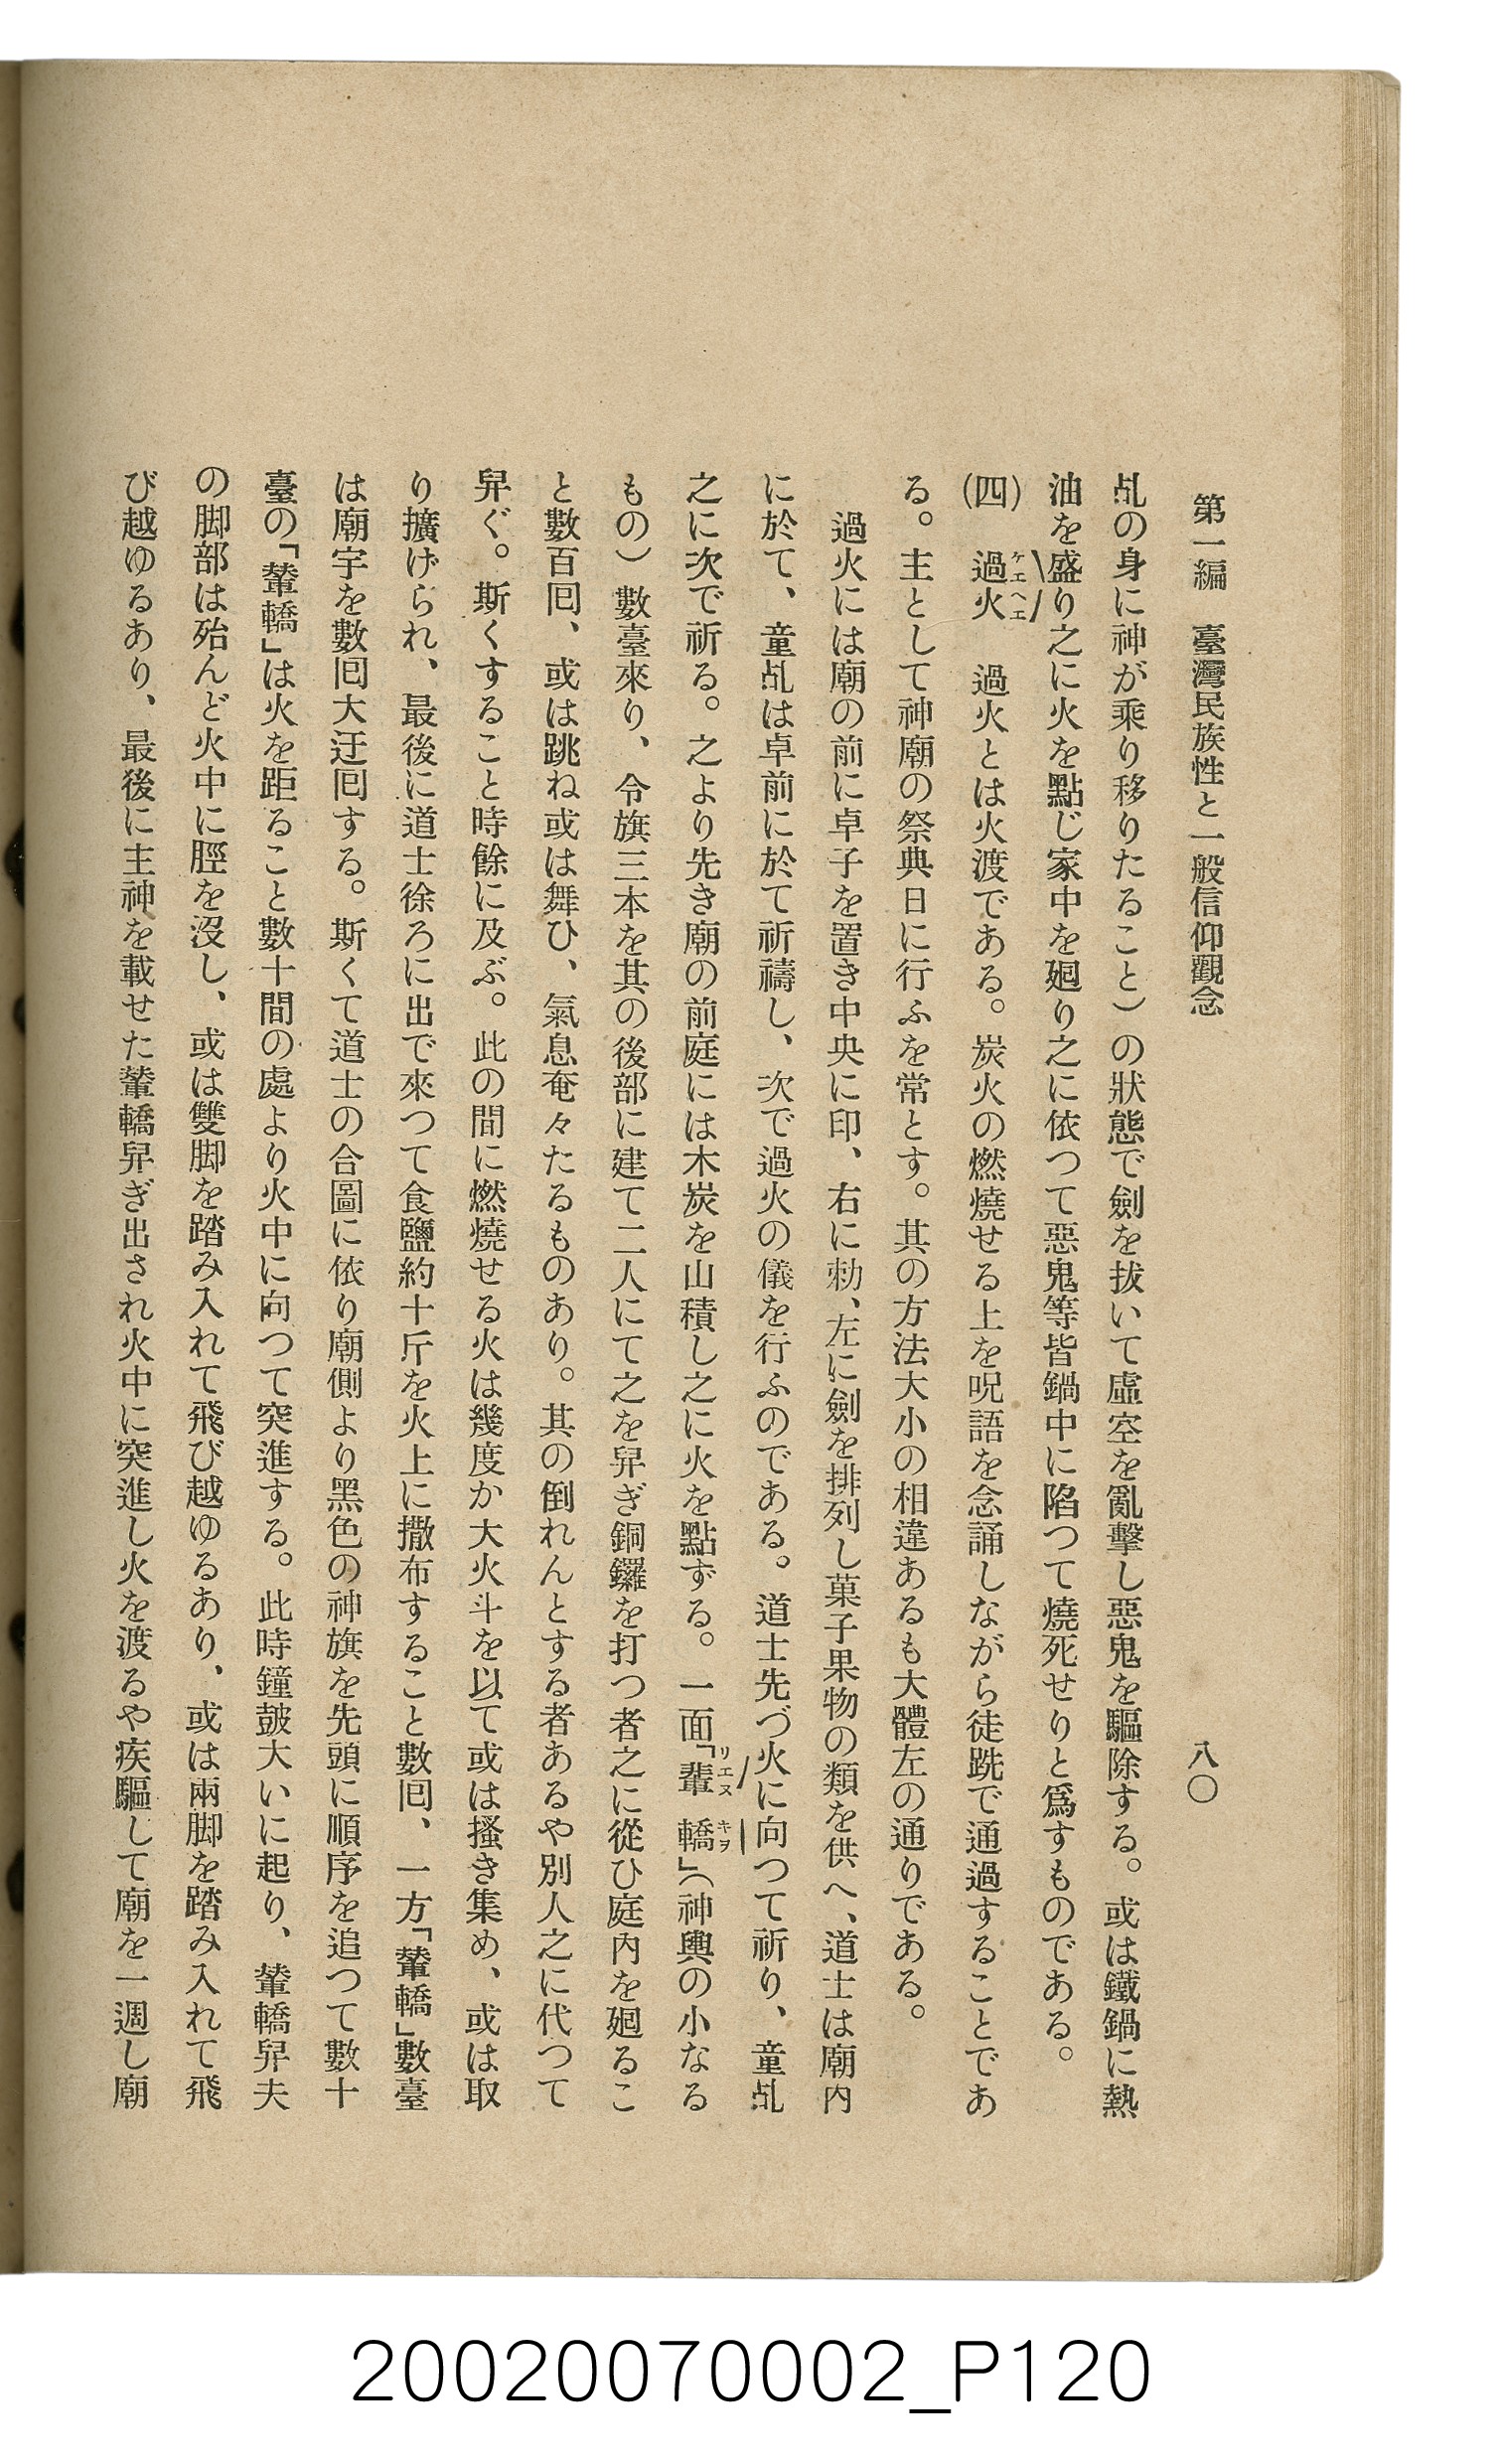 第一編　臺灣民族性と一般信仰觀念　八〇
乩の身に神が乘り移りたること）の狀態で劍を拔いて虛空を亂擊し惡鬼を驅除する。或は鐵鍋に熱
油を盛り之に火を點じ家中を廻り之に依つて惡鬼等皆鍋中に陷つて燒死せりと爲すものである。
(四)　過火　過火とは火渡である。炭火の燃燒せる上を呪語を念誦しながら徒跣で通過することであ
ケエヘエ
る。主として神廟の祭典日に行ふを常とす。其の方法大小の相違あるも大體左の通りである。
過火には廟の前に卓子を置き中央に印、右に勅、左に劍を排列し菓子果物の類を供へ、道士は廟內
に於て、童乩は卓前に於て祈禱し、次で過火の儀を行ふのである。道士先づ火に向つて祈り、童乩
之に次で祈る。之より先き廟の前庭には木炭を山積し之に火を點ずる。一面「輦轎」（神輿の小なる
リエヌキヲ
もの）數臺來り、令旗三本を其の後部に建て二人にて之を舁ぎ銅鑼を打つ者之に從ひ庭內を廻るこ
と數百囘、或は跳ね或は舞ひ、氣息奄々たるものあり。其の倒れんとする者あるや別人之に代つて
舁ぐ。斯くすること時餘に及ぶ。此の間に燃燒せる火は幾度か大火斗を以て或は搔き集め、或は取
り擴げられ、最後に道士徐ろに出で來つて食鹽約十斤を火上に撒布すること數囘、一方「輦轎」數臺
は廟宇を數囘大迂囘する。斯くて道士の合圖に依り廟側より黑色の神旗を先頭に順序を追つて數十
臺の「輦轎」は火を距ること數十間の處より火中に向つて突進する。此時鐘皷大いに起り、輦轎舁夫
の脚部は殆んど火中に脛を沒し、或は雙脚を踏み入れて飛び越ゆるあり、或は兩脚を踏み入れて飛
び越ゆるあり、最後に主神を載せた輦轎舁ぎ出され火中に突進し火を渡るや疾驅して廟を一週し廟
20020070002_P120